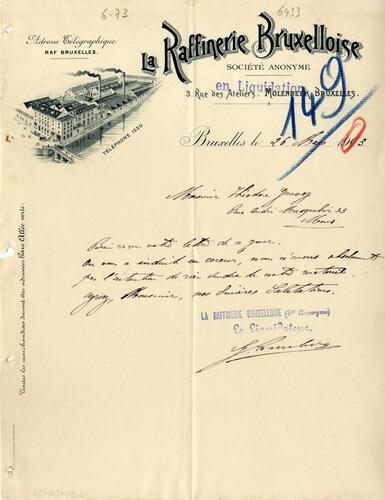 6-73
6433
Adresse Télégraphique
RAF BRUXELLES.
La Raffinerie Bruxelloise
SOCIÉTÉ ANONYME
en Liquidation
3, Rue des Ateliers. MOLENBEEK-BRUXELLES.
149
TÉLÉPHONE 1520
Bruxelles le 26 1903
Monsieur Théodore
Rue André Masquelier 33
Mons
Bien reçu votre lettre de
On vous a induit en erreur, nous n'avons absolument
pas l'intention de rien vendre de notre matériel.
Agréez Monsieur, nos Sincères Salutations.
LA RAFFINERIE BRUXELLOISE (Sté Anonyme)
Le Liquidateur,
Toutes les marchandises doivent être adressées Gare Allée verte.